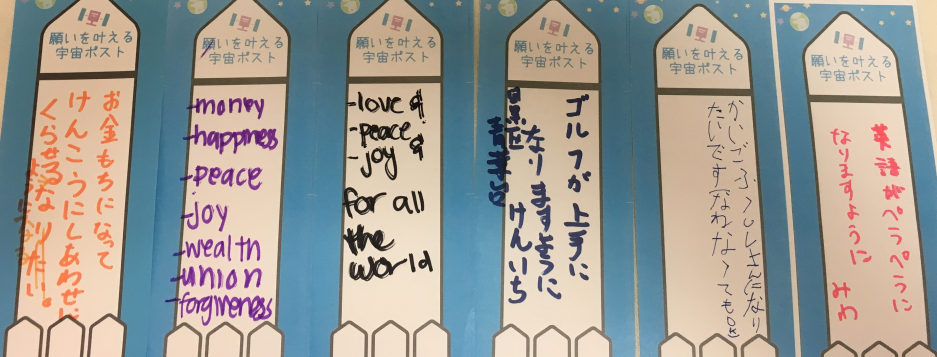 願いを叶える
宇宙ポスト
お金もちになって
けんこうにしあわせに
くらせるなりたい。
願いを叶える
宇宙ポスト
-money
-happiness
-peace
-joy
-wealth
-union
-forgiveness
願いを叶える
宇宙ポスト
-love &
-peace &
-joy
for all
the
world
願いを叶える
宇宙ポスト
ゴルフが上手に
なりますように
けんいち
願いを叶える
宇宙ポスト
かいごふくしさんになり
たいです(なれなくても
願いを叶える
宇宙ポスト
英語がペラペラに
なりますように みわ